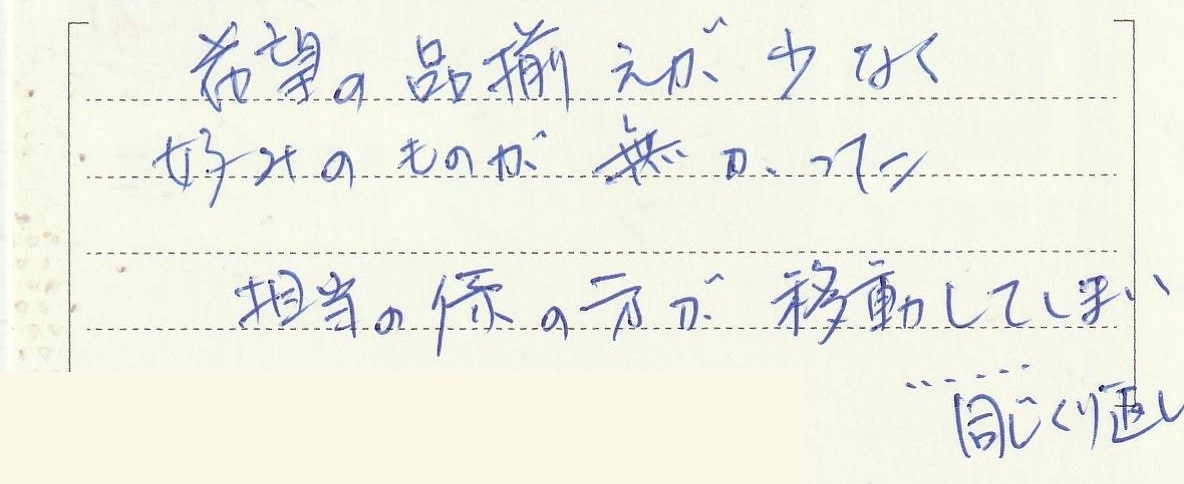 希望の品揃えが少なく
好みのものが無かった
担当の係の方が移動してしまい
同じくり返し